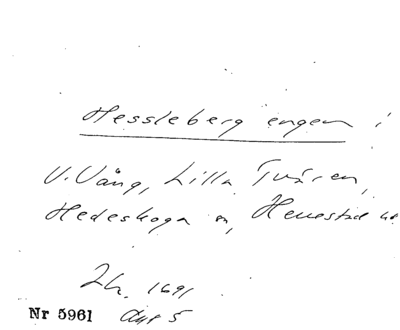 Hessleberg engen i
V. Vång, Lilla Tvären,
Hedeskoga sn, Herrestad hd
Jh. 1691
Nr 5961 Akt 5